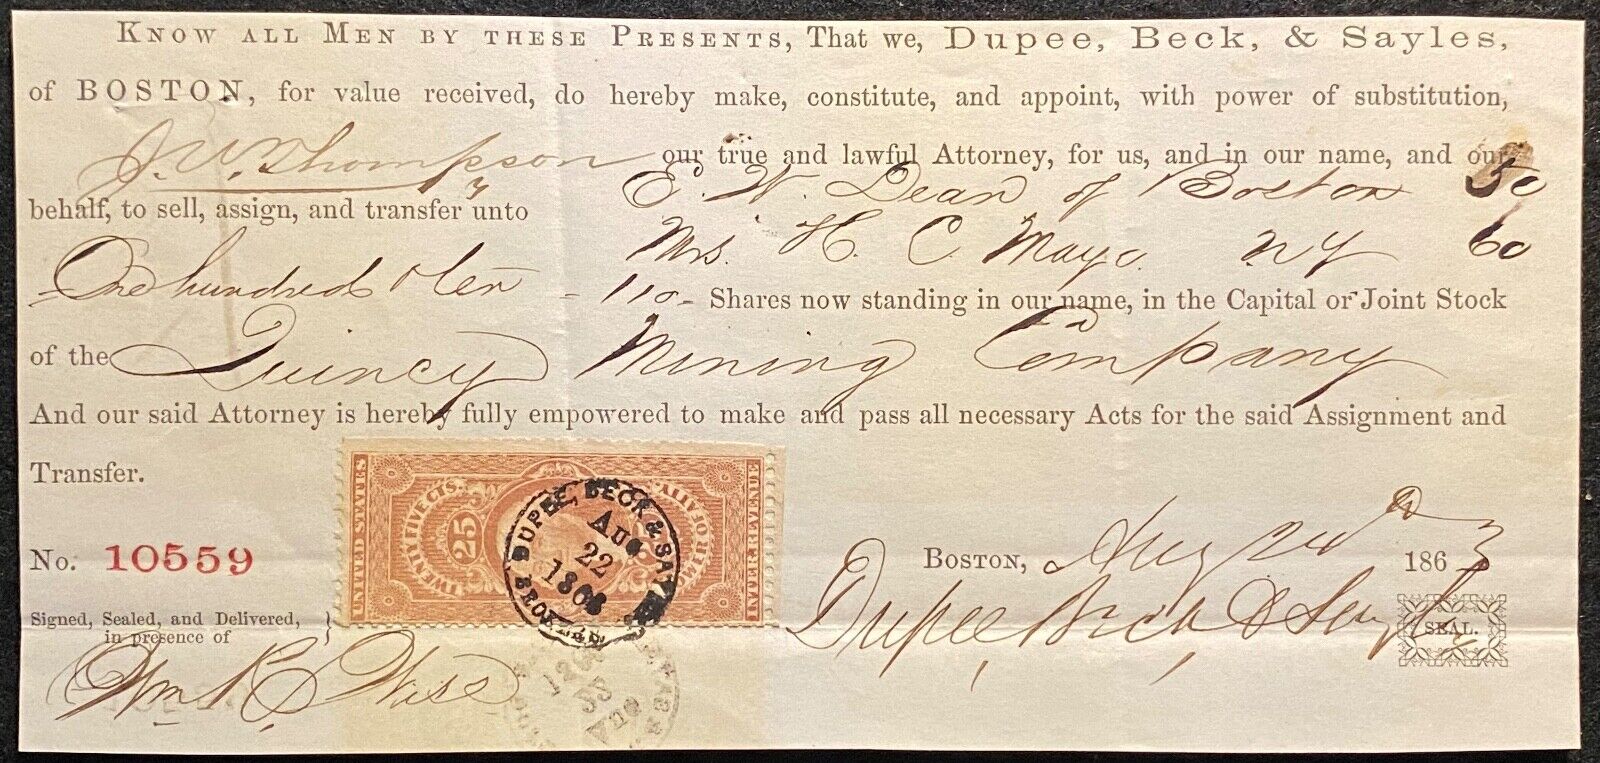 KNOW ALL MEN BY THESE PRESENTS, That we, Dupee, Beck, & Sayles,
of BOSTON, for value received, do hereby make, constitute, and appoint, with power of substitution,
Thompson our true and lawful Attorney, for us, and in our name, and our
behalf, to sell, assign, and transfer unto E. W. Dean of Boston 50
Mrs. H. C. Mayo NY 60
One hundred & ten - 110 - Shares now standing in our name, in the Capital or Joint Stock
of the Quincy Mining Company
And our said Attorney is hereby fully empowered to make and pass all necessary Acts for the said Assignment and
Transfer.
UNITED STATES
TWENTY FIVE CTS.
25
INTER. REVENUE
DUPEE, BECK & SAYLES
AUG
22
BROKERS
No. 10559
BOSTON, Aug 1863
Dupee, Beck, & Sayles
SEAL.
Signed, Sealed, and Delivered,
in presence of
Wm